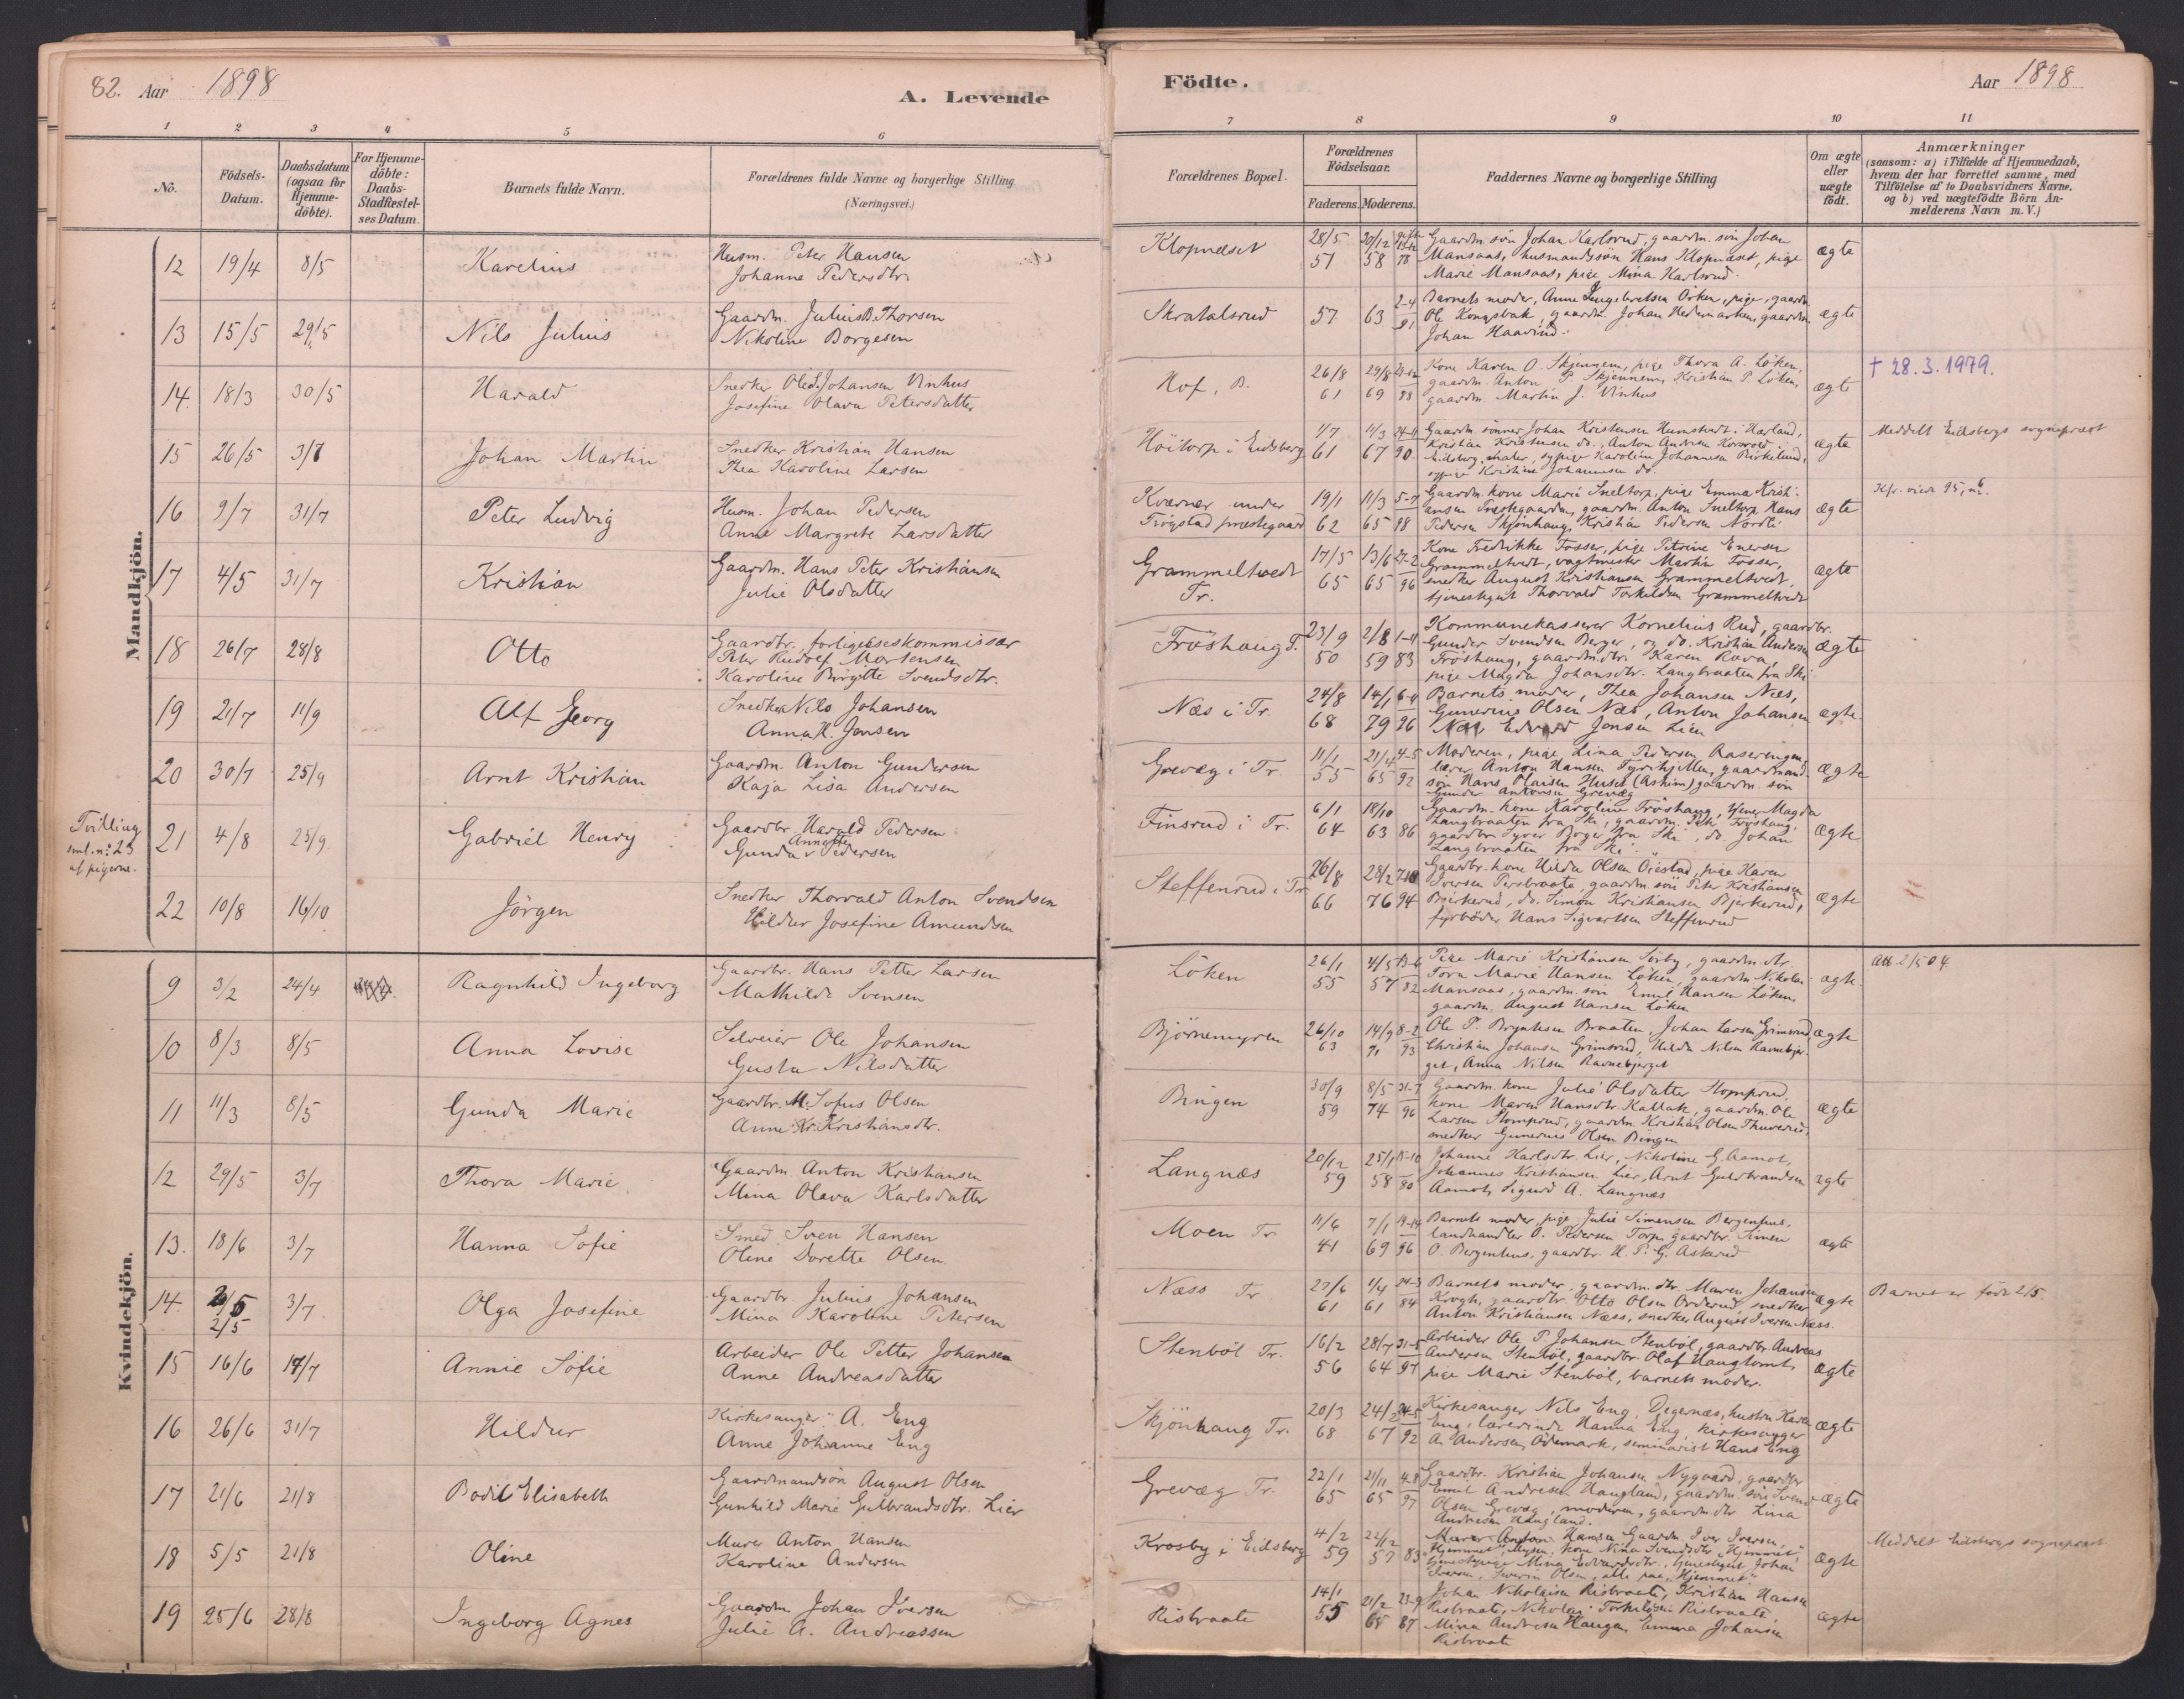 82. Aar 1898
A. Levende
Födte.
Aar 1898
1 2 3 4 5 6 7 8 9 10 11
No.
Födsels-Datum.
Daabsdatum (ogsaa for Hjemmedöbte).
For Hjemmedöbte: Daabs-Stadfæstelses Datum.
Barnets fulde Navn.
Forældrenes fulde Navne og borgerlige Stilling (Næringsvei.)
Forældrenes Bopæl.
Forældrenes Födselsaar.
Faderens. Moderens.
Faddernes Navne og borgerlige Stilling
Om ægte eller uægte födt.
Anmærkninger
(saasom: a) i Tilfælde af Hjemmedaab, hvem der har forrettet samme, med Tilföielse af to Daabsvidners Navne, og b) ved uægtefödte Börn Anmelderens Navn m. V.)
Mandkjön.
12 19/4 8/5 Karelius
Husm. Peter Hansen
Johanne Pedersdtr.
Klopnæset 28/5 57 20/12 58 78
Gaardm. sön Johan Karlsrud, gaardm. sön Johan
Mansaas, husmandssön Hans Klopnæset, pige
Marie Mansaas, pige Mina Karlsrud.
ægte
13 15/5 29/5 Nils Julius
Gaardm. Julius B. Thorsen
Nikoline Borgesen
Skratalsrud 57 63 2-4 91
Barnets moder, Anne Engebretsen Orken, pige, gaardm.
Ole Kongsbak, gaardm. Johan Hedemarken, gaardm.
Johan Haavind.
ægte
14. 18/3 30/5 Harald
Snedker Ole L. Johansen Vinhus
Josefine Olava Petersdatter
Hof, B. 26/8 61 29/8 69 88
Kone Karen O. Skjennem, pige Thora A. Löken,
gaardm. Anton P. Skjennem, Kristian P. Löken,
gaardm. Martin J. Vinhus
ægte
† 28.3.1979.
15 26/5 3/7 Johan Martin
Snedker Kristian Hansen
Thea Karoline Larsen
Höitorp i Eidsberg 1/7 61 11/3 67 90
Gaardm. sönner Johan Kristensen Humstvedt i Hærland,
Kristian Kristensen do., Anton Andersen
Eidsberg, maler, sypige Karoline Johannesen Birkelund,
sypige Kristine Johannesen do.
ægte
Meddelt Eidsbergs sogneprest
16 9/7 31/7 Peter Ludvig
Husm. Johan Pedersen
Anne Margrete Larsdatter
Kværner under
Trögstad præstegaard 19/1 62 11/3 65 5-7
Gaardm. kone Marie Sneltorp, pige Emma Kristi-
ansen Præstegaarden, gaardm. Anton Sneltorp, Hans
Pedersen Skjönhaug, Kristian Pedersen Nordli
ægte
17 4/5 31/7 Kristian
Gaardm. Hans Peter Kristiansen
Julie Olsdatter
Grammeltvedt
Tr. 17/5 65 13/6 65 27-2 96
Kone Fredrikke Fosser, pige Petrine Enersen
Grammeltvedt, vagtmester Martin Fosser,
snedker August Kristiansen Grammeltvedt,
tjenestegut Thorvald Torkildsen Grammeltvedt
ægte
18 26/7 28/8 Otto
Gaardbr. forligelseskommissær
Peter Rudolf Mortensen
Karoline Birgitte Svendsdtr.
Fröshaug T. 23/9 50 2/8 59 1-11 83
Kommunekasserer Kornelius Rud, gaardbr.
Gunder Svendsen Berger, og do. Kristian Andersen
Fröshaug, gaardm.dtr. Karen Rava,
pige Magda Johansdtr. Langbraaten fra Ski
ægte
19 21/7 11/9 Alf Georg
Snedker Nils Johansen
Anna H. Jansen
Næs i Tr. 24/8 68 14/1 79 96
Barnets moder, Thea Johansen Næs,
Gunerius Olsen Næs, Anton Johansen
Næs, Edvard Jonsen Lien
ægte
20 30/7 25/9 Arnt Kristian
Gaardm. Anton Gundersen
Kaja Lisa Andersen
Grevæg i Tr. 11/1 55 21/4 65 4-5 92
Moderen, pige Lina Pedersen Raserengen,
lærer Anton Hansen Fyrihjellen, gaardmand-
sön Hans Huset (Askim) gaardm. sön
Gunder Antonsen Grevæg
ægte
Tvilling
sml. nr. 23
af pigerne.
21 4/8 25/9 Gabriel Henry
Gaardbr. Harald Pedersen
Gunda Annette Pedersen
Finsrud i Tr. 6/1 64 18/10 63 86
Gaardm. kone Karoline Fröshaug, Magda
Langbraaten fra Ski, gaardm. Peter Fröshaug,
gaardbr. Syver Boger fra Ski, do. Johan
Langbraaten fra Ski.
ægte
22 10/8 16/10 Jörgen
Snedker Thorvald Anton Svendsen
Hildur Josefine Amundsen
Steffensrud i Tr. 26/8 66 28/2 76 94
Gaardbr. kone Hilda Olsen Öiestad, pige Karen
Iversen Persbraate, gaardm. sön Peter Kristiansen
Bjerkerud, do. Simon Kristiansen Bjerkerud,
fyrböder Hans Sigvartsen Steffensrud
ægte
Kvindekjön.
9 3/2 24/4 Ragnhild Ingeborg
Gaardbr. Hans Petter Larsen
Mathilde Svensen
Löken 26/1 55 4/5 57 82
Pige Marie Kristiansen Sörby, gaardm. dtr.
Tora Marie Hansen Löken, gaardm. Nikolai
Mansaas, gaardm. sön Emil Hansen Löken,
gaardm. August Hansen Löken
ægte.
Att. 2/5 04
10 8/3 8/5 Anna Lovise
Selveier Ole Johansen
Gusta Nilsdatter
Björnemyren 26/10 63 14/9 71 8-2 93
Ole P. Braaten, Johan Larsen Grimsrud,
Christian Johansen Grimsrud, Hilda Nilsen Ravnebjer-
get, Anna Nilsen Ravnebjerget
ægte
11 11/3 8/5 Gunda Marie
Gaardbr. M. Sofus Olsen
Anne Kr. Kristiansdtr.
Bingen 30/9 59 8/5 74 31-7 96
Gaardm. kone Julie Olsdatter Stomprud,
kone Maren Hansdtr. Kallak, gaardm. Ole
Larsen Stomprud, gaardm. Kristian Olsen Thuverud,
snedker Gunerius Olsen Bingen
ægte
12 29/5 3/7 Thora Marie
Gaardm. Anton Kristiansen
Mina Olava Karlsdatter
Langnæs 20/12 59 25/1 58 80
Johanne Karlsdtr. Lier, Nikoline G. Aamot,
Johannes Kristiansen Lier, Arnt Guldbrandsen
Aamot, Sigurd A. Langnæs
ægte
13. 18/6 3/7 Hanna Sofie
Smed Sven Hansen
Oline Dorette Olsen
Moen Tr. 11/6 41 7/1 69 96
Barnets moder, pige Julie Simensen Bergenhus,
landhandler O. Pedersen Torp, gaardbr. Simen
O. Bergenhus, gaardbr. H. P. G. Askerud
ægte
14. 2/5 3/7 Olga Josefine
2/5
Gaardbr Julius Johansen
Mina Karoline Petersen
Næss Tr 27/6 61 1/4 61 84
Barnets moder, gaardm. dtr. Maren Johansen
Krogh, gaardbr. Otto Olsen Orderud, snedker
Anton Kristiansen Næss, snedker August Iversen Næss.
ægte
Barnet er födt 2/5.
15 16/6 17/7 Annie Sofie
Arbeider Ole Petter Johansen
Anne Andreasdatter
Stenböl Tr. 16/2 56 28/7 64 31-5 97
Arbeider Ole P. Johansen Stenböl, gaardbr. Andreas
Andersen Stenböl, gaardbr. Olaf Haugtomt,
pige Marie Stenböl, barnets moder.
ægte
16 26/6 31/7 Hildur
Kirkesanger A. Eng
Anne Johanne Eng
Skjönhaug Tr. 20/3 68 67 92
Kirkesanger Nils Eng, Degernæs, hustru Karen
Eng, lærerinde Hanna Eng, kirkesanger
A. Andersen, Ödemark, seminarist Hans Eng
ægte
17 21/6 21/8 Bodil Elisabeth
Gaardmandsön August Olsen
Gunhild Marie Gulbrandsdtr. Lier
Grevæg Tr. 22/1 65 21/11 65 4-8 97
Gaardbr. Kristian Johansen Nygaard, gaardbr
Emil Andresen Haugland, gaardm. sön Svend
Olsen Grevæg, moderen, gaardm. dtr Lina
Andresen Haugland.
ægte
18 5/5 21/8 Oline
Murer Anton Hansen
Karoline Andersen
Krosby i Eidsberg 4/2 59 22/12 57 83
Murer Anton Hansen Gaardm. Iver Iversen,
"Hjemmet", Mysen, kone Nina Svendsdtr. "Hjemmet",
tjenestepige Mina Edvardsdtr., tjenestegut Johan
Iversen, Severin Olsen, alle paa "Hjemmet"
ægte
Meddelt Eidsbergs sogneprest
19 25/6 28/8 Ingeborg Agnes
Gaardm. Johan Iversen
Julie A. Andreassen
Risbraate 14/1 55 21/2 65 87
Johan Nikolaisen Risbraate, Kristian Hansen
Risbraate, Nikolai Torkildsen Risbraate,
Mina Andresen Haugan, Emma Johansen
Risbraate
ægte